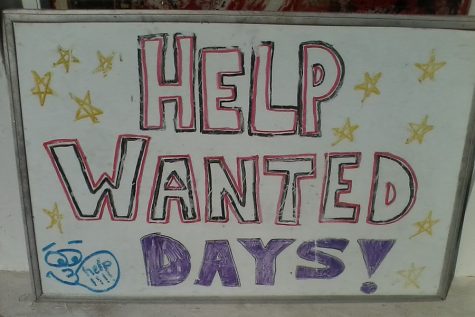 HELP
WANTED
DAYS!
help
!!!!